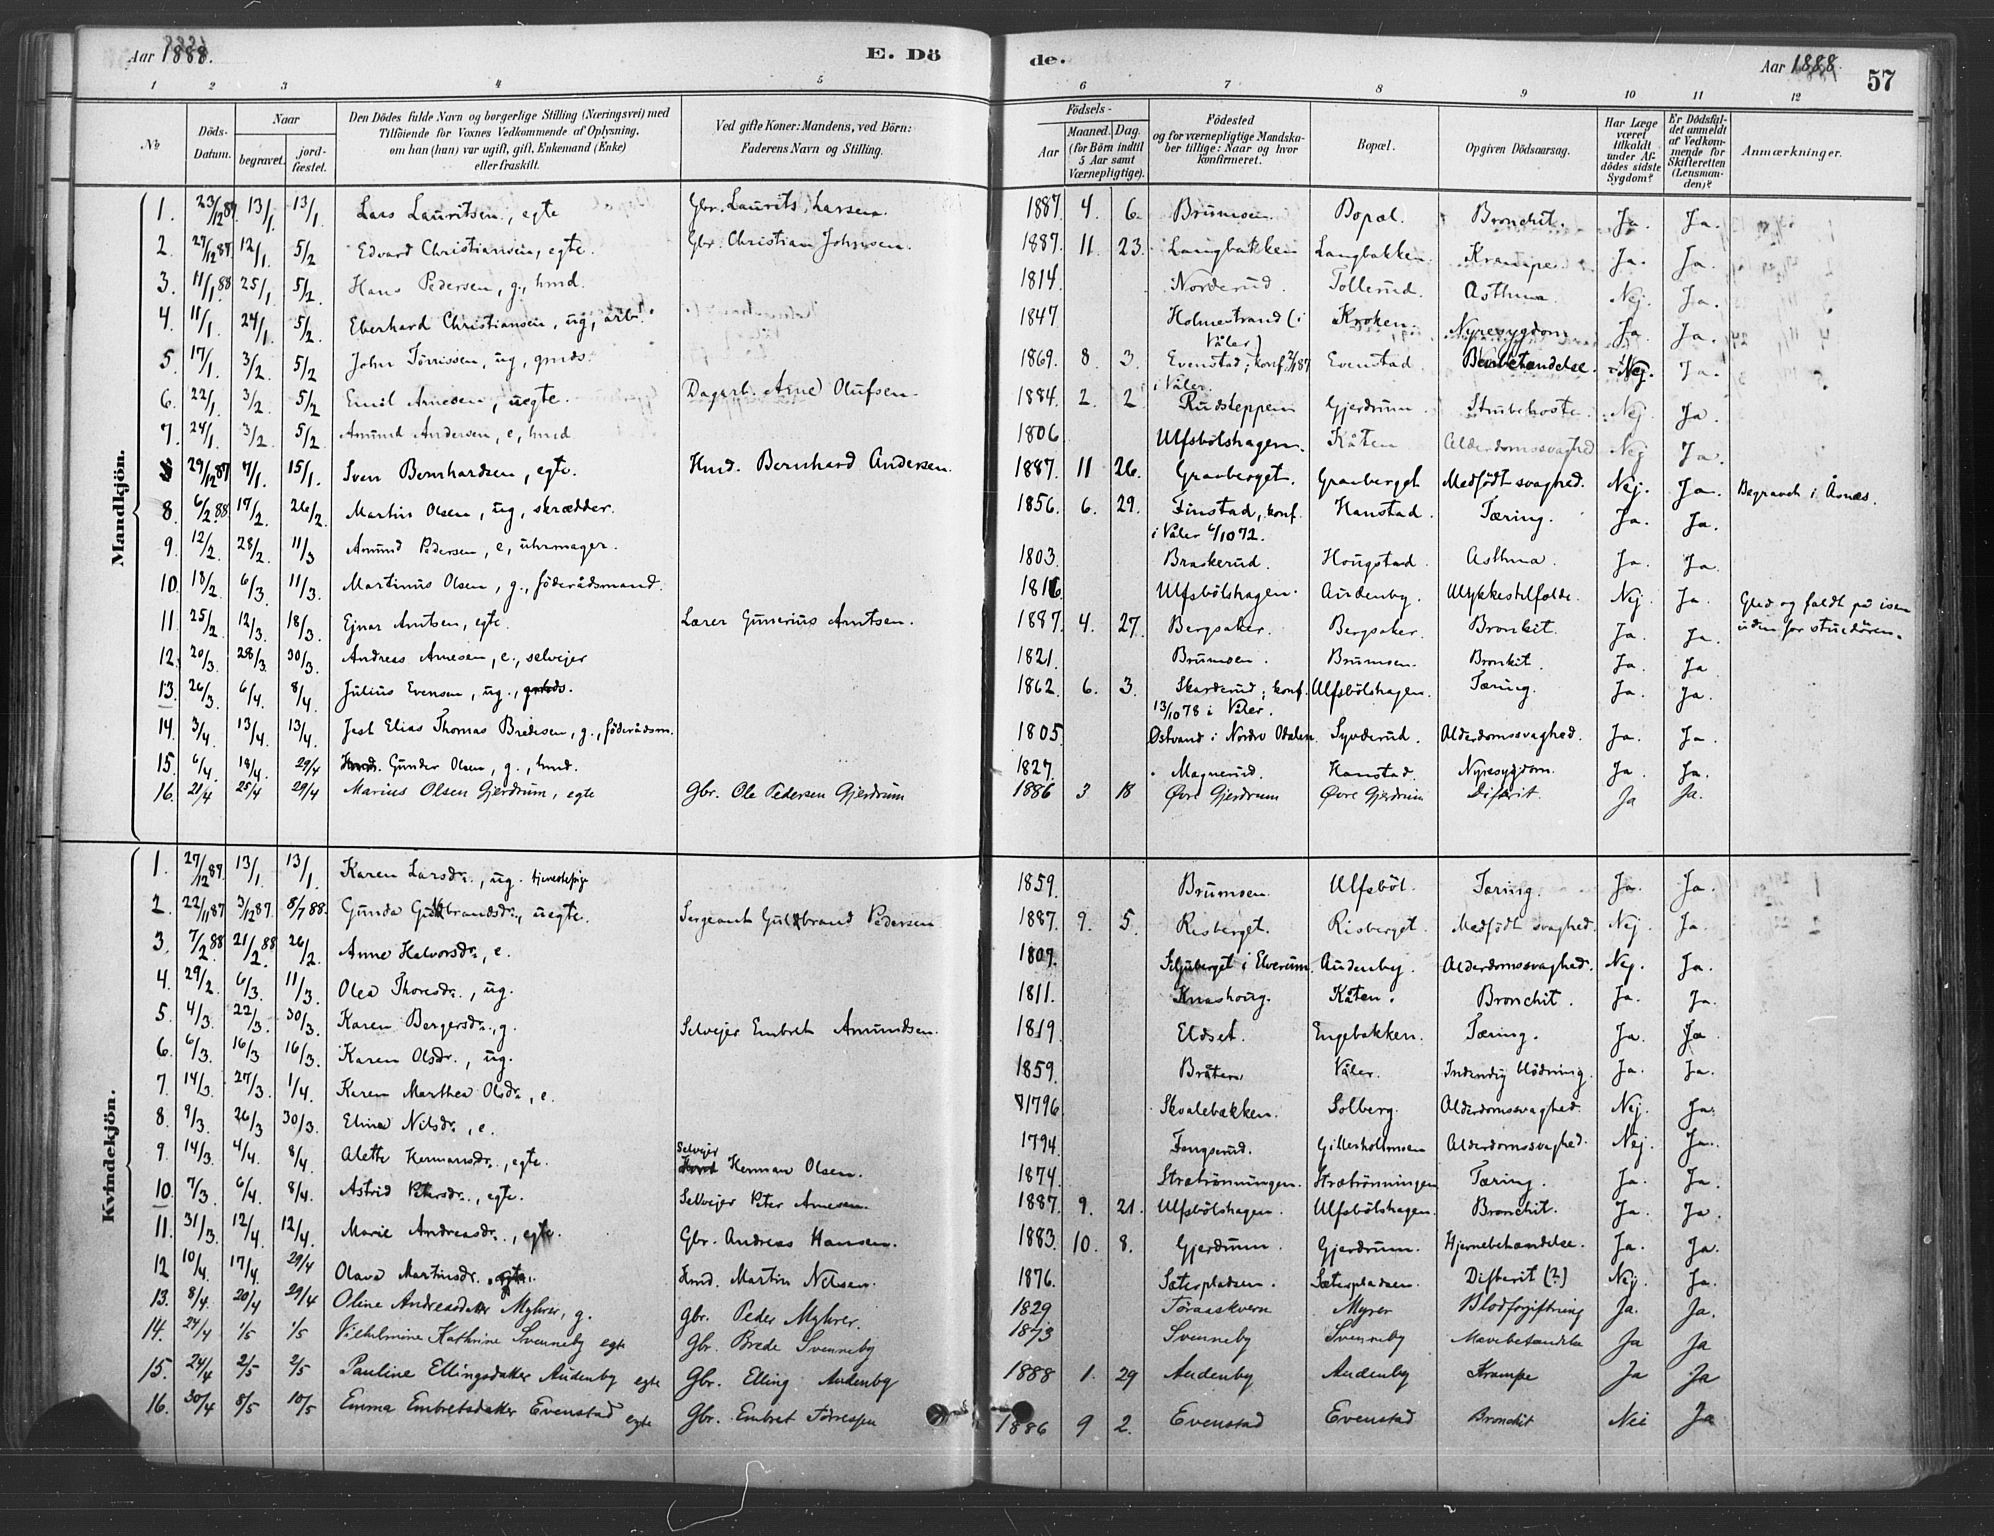 Aar 1888.
E. Dö
de.
Aar 1888.
57
1 2 3 4 5 6 7 8 9 10 11 12
№
Döds-Datum.
Naar
begravet.
jordfæstet.
Den Dödes fulde Navn og borgerlige Stilling (Næringsvei) med
Tilföiende for Voxnes Vedkommende af Oplysning,
om han (hun) var ugift, gift, Enkemand (Enke)
eller fraskilt.
Ved gifte Koner: Mandens, ved Börn:
Faderens Navn og Stilling.
Födsels-
Aar
Maaned. Dag.
(for Börn indtil
5 Aar samt
Værnepligtige).
Födested
og for værnepligtige Mandska-
ber tillige: Naar og hvor
konfirmeret.
Bopæl.
Opgiven Dödsaarsag.
Har Læge
været
tilkaldt
under Af-
dödes sidste
Sygdom?
Er Dödsfal-
det anmeldt
af Vedkom-
mende for
Skifteretten
(Lensman-
den)?
Anmærkninger.
Mandkjön.
1. 23/12 87. 13/1. 13/1. Lars Lauritsen, egte Gbr. Laurits Larsen. 1887. 4. 6. Brumsen. Bopæl. Bronchit. Ja. Ja.
2. 27/12 87. 12/1. 5/2 Edvard Christiansen, egte. Gbr. Christian Johnsen. 1887. 11. 23. Langbakken Langbakken. Krampe. Ja. Ja.
3. 11/1 88 25/1. 5/2. Hans Pedersen, g., hmd. 1814. Norderud. Tollerud. Asthma. Nej. Ja.
4. 11/1. 24/1. 5/2. Eberhard Christiansen, ug, arb. 1847 Holmestrand (i Våler) Kroken. Nyresygdom Ja Ja.
5. 17/1. 3/2. 5/2 John Törrissen, ug, gmds. 1869. 8. 3. Evenstad; konf. 2/1 87 i Våler. Evenstad Benbetændelse. Nej. Ja.
6. 22/1. 3/2. 5/2. Emil Arnesen, uegte. Dagarb. Arne Olufsen. 1884. 2. 2 Rudsteppen Gjerdrum. Stubehoste. Nej. Ja
7. 24/1. 3/2. 5/2. Amund Andersen, e, hmd 1806 Ulfsbölshagen. Kåten Alderdomssvaghed Nej Ja.
29/12 87 7/1. 15/1. Sven Bernhardsen, egte. Hmd. Bernhard Andersen. 1887. 11 26. Gravberget. Gravberget Medfödt svaghed. Nej. Ja. Begravet i Åsnes.
8. 6/2. 88 17/2. 26/2. Martin Olsen, ug, skrædder. 1856. 6. 29. Finstad, konf. i Våler 6/10 72. Hanstad. Tæring. Ja. Ja.
9. 12/2. 28/2. 11/3 Amund Pedersen, e, uhrmager. 1803. Braskerud. Hougstad. Asthma. Ja. Ja.
10. 18/2. 6/3. 11/3. Martinus Olsen, g., föderådsmand. 1816. Ulfsbölshagen. Audenby. Ulykkestilfælde. Nej. Ja. Gled og faldt på isen udenfor stuedören.
11. 25/2. 12/3. 18/3. Ejnar Arntsen, egte. Lærer Gunerius Arntsen. 1887. 4. 27. Bergsaker. Bergsaker. Bronkit. Ja. Ja.
12. 20/3. 28/3. 30/3. Andreas Arnesen, e., selvejer 1821. Brumsen. Brumsen. Bronkit. Ja. Ja
13. 26/3. 6/4. 8/4. Julius Evensen, ug., gmds. 1862. 6. 3. Skarderud; konf. 13/10 78 i Våler. Ulfsbölshagen. Tæring. Ja. Ja.
14. 3/4. 13/4. 13/4. Jest Elias Thomas Bredesen, g., föderådsm. 1805. Östvand i Nordre Odalen Syvderud. Alderdomssvaghed. Ja. Ja.
15. 6/4. 18/4. 29/4 Hmd. Gunder Olsen, g., hmd. 1827. Magnerud. Hanstad. Nyresygdom. Ja. Ja.
16. 21/4 25/4 29/4 Marius Olsen Gjerdrum, egte Gbr. Ole Pedersen Gjerdrum 1886 3 18 Övre Gjerdrum Övre Gjerdrum Difterit Ja Ja.
Kvindekjön.
1. 27/12 87. 13/1. 13/1. Karen Larsdr., ug. tjenestepige 1859. Brumsen. Ulfsböl. Tæring. Ja. Ja.
2. 22/11 87 3/12 87. 8/7 88. Gunda Gulbrandsdr., uegte. Sergeant Gulbrand Pedersen 1887. 9. 5. Risberget. Risberget. Medfödt svaghed. Nej. Ja.
3. 7/2. 88 21/2. 88 26/2. Anne Halvorsdr., e. 1809. i Elverum. Audenby. Alderdomssvaghed. Nej. Ja.
4. 29/2. 6/3. 11/3. Olea Thoresdr., ug. 1811. Knashoug. Kåten. Bronchit. Ja. Ja.
5. 4/3. 22/3. 30/3. Karen Bergersdr., g. Selvejer Embret Amundsen. 1819. Eldset. Engebakken. Tæring. Ja. Ja
6. 6/3. 16/3 16/3. Karen Olsdr., ug. 1859. Bråten Våler. Indvendig blödning. Ja. Ja.
7. 14/3 27/3. 1/4. Karen Marthea Olsdr., e. 1796. Skvalebakken. Solberg. Alderdomssvaghed. Nej. Ja.
8. 9/3. 26/3 30/3. Eline Nilsdr., e. 1794. Fengserud. Gillesholmen Alderdomssvaghed. Nej. Ja.
9. 14/3. 4/4. 8/4. Alette Hermansdr., egte. Selvejer Herman Olsen. 1874. Strætrönningen. Strætrönningen Tæring. Ja. Ja.
10. 7/3. 6/4. 8/4. Astrid Petersdr., egte. Selvejer Peter Arnesen. 1887. 9. 21. Ulfsbölshagen. Ulfsbölshagen. Bronchit. Ja. Ja.
11. 31/3. 12/4. 12/4. Marie Andreasdr., egte. Gbr. Andreas Hansen. 1883. 10. 8. Gjerdrum. Gjerdrum. Hjernebetændelse. Ja. Ja.
12 10/4. 17/4. 29/4 Olava Martinsdr., egte. Hmd. Martin Nilsen. 1876. Sæterpladsen. Sæterpladsen. Difterit (?) Nej. Ja.
13. 8/4. 20/4 29/4 Oline Andreasdatter Myhrer, g. Gbr. Peder Myhrer. 1829 Toraaskvern Myrer Blodforgiftning Ja. Ja.
14. 24/4 1/5 1/5 Vilhelmine Kathrine Svenneby egte Gbr. Brede Svenneby 1873 Svenneby Svenneby Mavebetændelse Ja Ja
15. 24/4 2/5 2/5 Pauline Ellingsdatter Audenby egte Gbr. Elling Audenby 1888 1. 29 Audenby Audenby Krampe Ja Ja
16. 30/4 8/5 10/5 Emma Embretsdatter Evenstad egte Gbr. Embret Törresen 1886 9 2. Evenstad Evenstad Bronchit Nei Ja